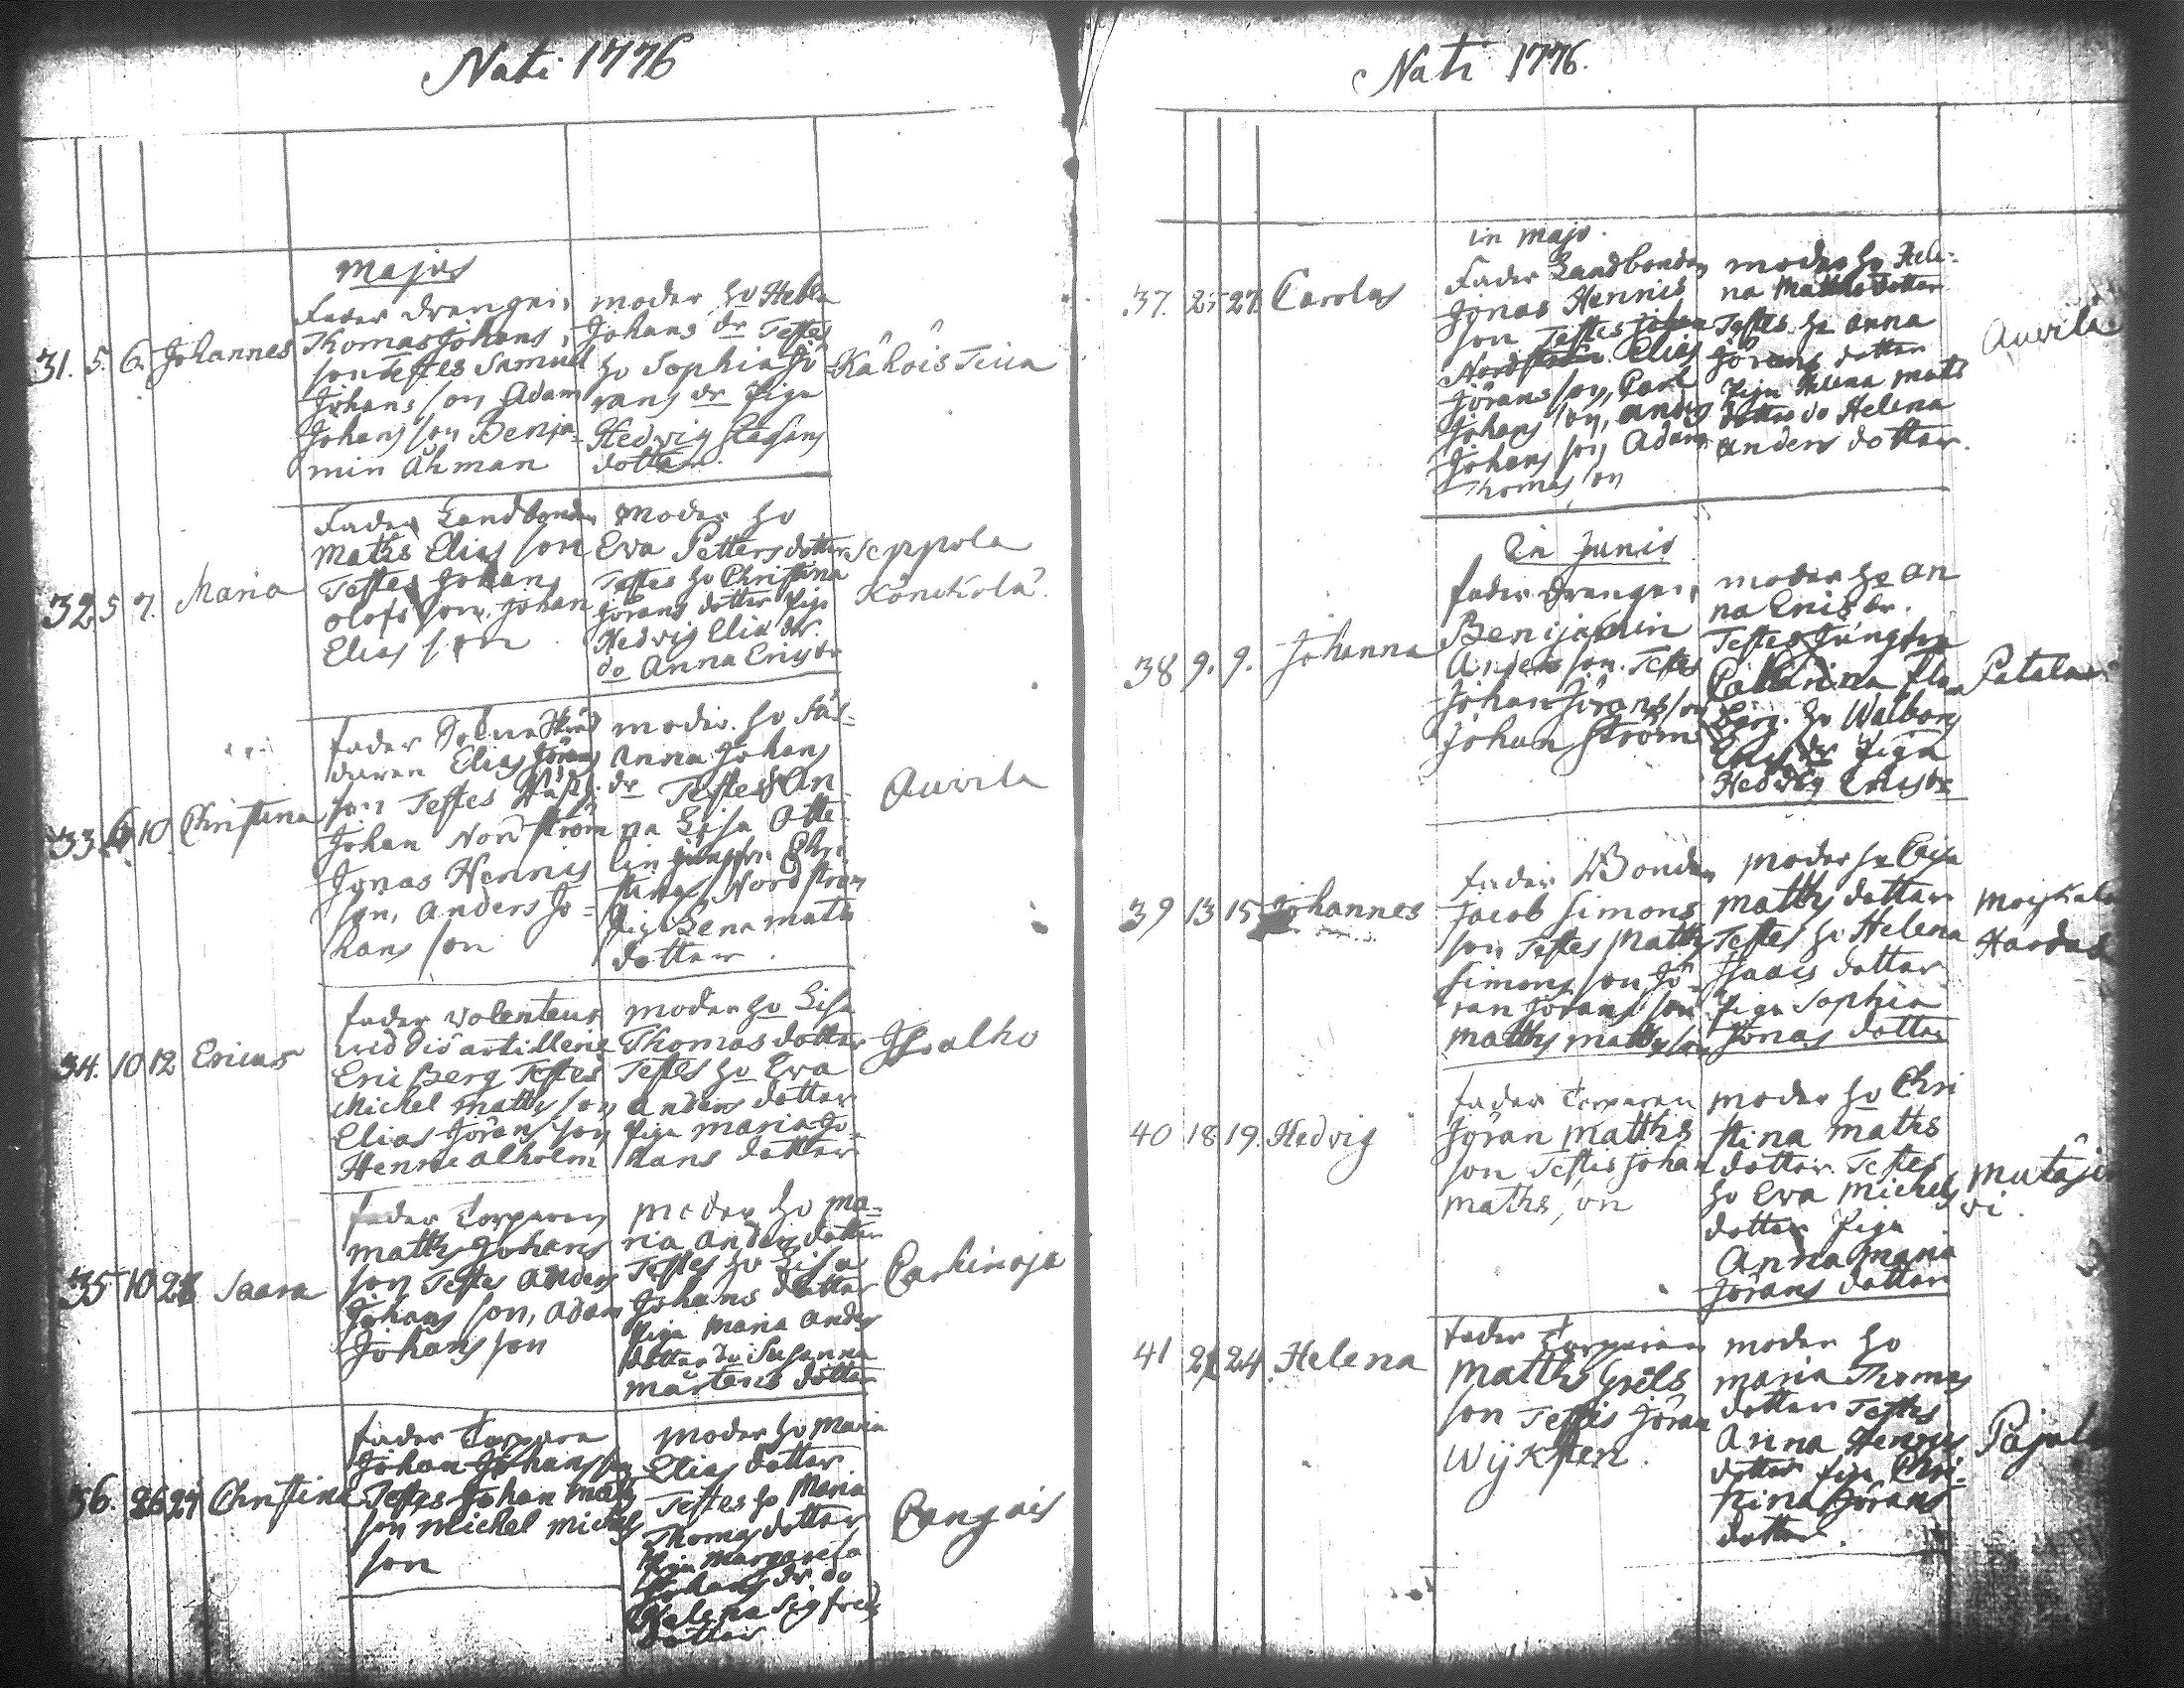 Nati 1776
Majus
31. 5. 6. Johannes
Fader drengen
Thomas Johans
son Testes Samuel
Johans son Adam
Johans son Benja-
min Åhman
moder ho Helena
Johans dr Testes
ho Sophia Jö
rans dr Piga
Hedvig Staphans
dotter.
Kähois Tiila
32. 5 7. Maria
Fader Landbonden
Matts Elias son
Testes Johan
Olofs son. Johan
Elias son
Moder ho
Eva Petters dotter
Testes ho Christina
Jörans dotter Piga
Hedvig Elia dr.
do Anna Erics dr
Seppola
Könckölä.
33. 10 Christina
fader
Elias Jörans
son Testes
Johan Nordström
Jonas Hennics
son, Anders Jo-
hans son
moder. ho
Anna Johans
dr Testes An
na Lisa Otte
lin jungfru Chri
stina Nordström
Piga Lena Matts
dotter.
Auvila
34. 10 12 Ericus
fader volenteur
vid artillerie
Eric Berg Testes
Michel Matts son
Elias Jörans son
Henric Alholm
moder ho Lisa
Thomas dotter
Testes ho Eva
Anders dotter
Piga Maria Jo-
hans dotter
Isoalho
35 10 28 Saara
fader Torparen
Matts Johans
son Testes Anders
Johans son, Adam
Johans son
moder ho Ma-
ria Anders dotter
Testes ho Lisa
Johans dotter
Piga Maria Anders
dotter do Susanna
Mårtens dotter
Parhinoja
36. 26 27 Christina
fader Torpare
Johan Johansson
Testes Johan Matts
son Michel Michels
son
moder ho Maria
Elias dotter
Testes ho Maria
Thomas dotter
Piga Margareta
Johans dr do
Helena Sigfreds
dotter
Pangais
Nati 1776.
in majo.
37. 25 27. Carolus
Fader Landbonden
Jonas Hennics
son Testes Johan
Nordström. Elias
Jörans son, Carl
Johans son, Anders
Johans son Adam
Thomas son
moder ho Hele-
na Matts dotter
Testes ho Anna
Jörans dotter
Piga Helena Matts
dotter do Helena
Anders dotter.
Auvila
In Junio
38 9. 9. Johanna
fader drengen
Benijamin
Anders son. Testes
Johan Jörans son
Johan Ström
moder ho An
na Erics dr.
Testes Jungfru
Catharina
berg. ho Walborg
Erics dr Piga
Hedvig Erics dr
39 13 15 Johannes
fader Bonden
Jacob Simons
son Testes Matts
Simons son Jö-
ran Jörans son
Matts Matts son
moder ho Caisa
Matts dotter
Testes ho Helena
Isaacs dotter
Piga Sophia
Jonas dotter
40 18 19. Hedvig
fader Torparen
Jöran Matths
son Testis Johan
Maths son
moder ho Chri
stina Maths
dotter. Testes
ho Eva Michels
dotter Piga
Anna Maria
Jörans dotter
Mutajer
vi.
41 21 24. Helena
fader Torparen
Matths Grels
son Testis Jöran
Wijksten.
moder ho
Maria Thomas
dotter Testes
Anna Henrics
dotter Piga Chri-
stina Jörans
dotter.